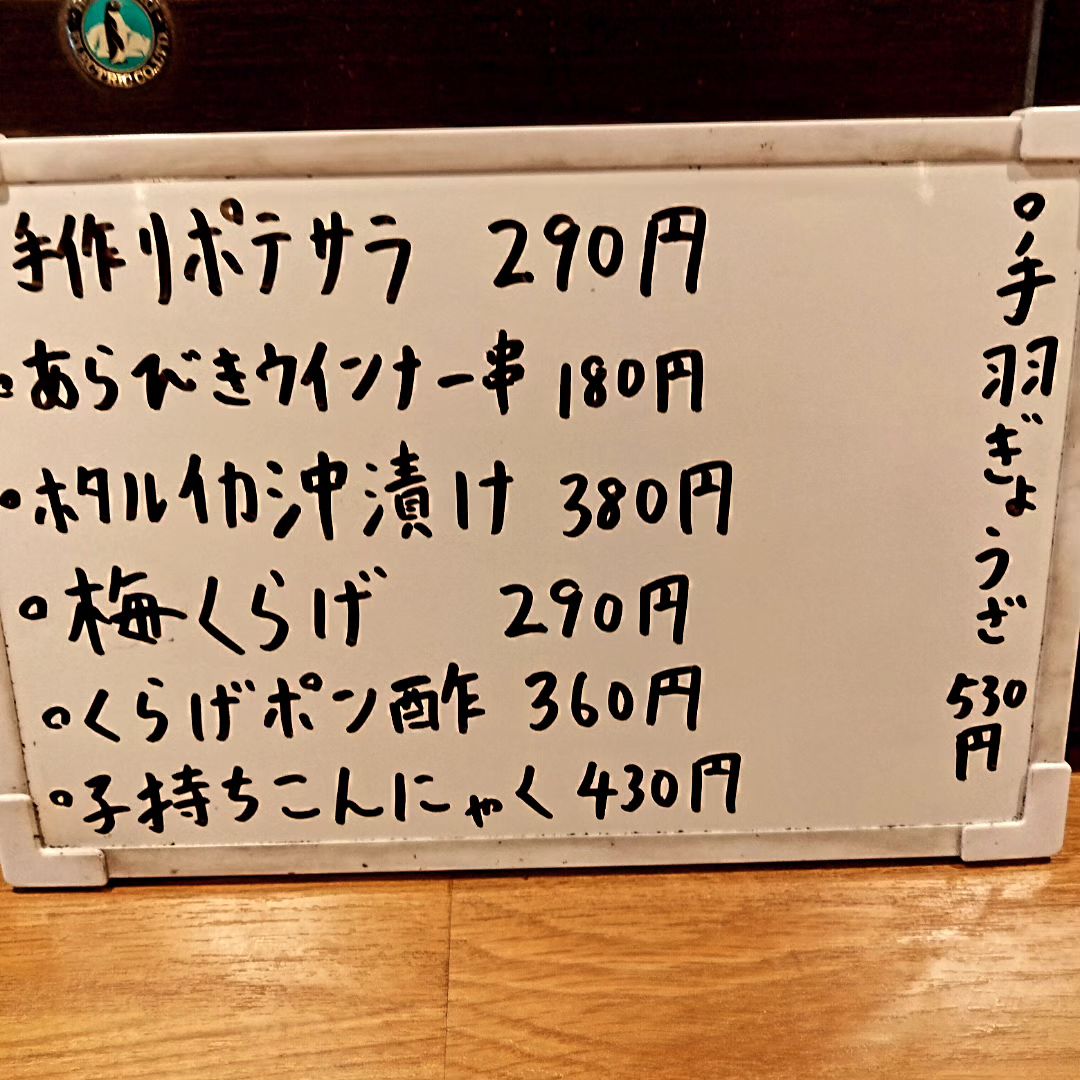 ELECTRIC CO.,LTD.
手作りポテサラ 290円
。あらびきウインナー串 180円
。ホタルイカ沖漬け 380円
。梅くらげ 290円
。くらげポン酢 360円
。子持ちこんにゃく 430円
。手羽ぎょうざ 530円